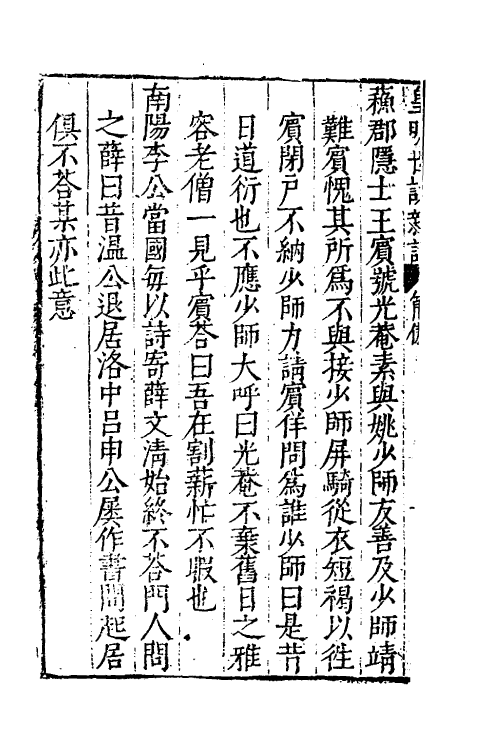 皇明世說新語
蘓郡隱士王賓號光菴素與姚少師友善及少師靖
難賓愧其所爲不與接少師屏騎從衣短褐以徃
賓閉戶不納少師力請賓佯問爲誰少師曰是昔
日道衍也不應少師大呼曰光菴不棄舊日之雅
容老僧一見乎賓荅曰吾在割薪忙不暇也
南陽李公當國每以詩寄薛文清始終不荅門人問
之薛曰昔溫公退居洛中吕申公屢作書問起居
俱不荅某亦此意